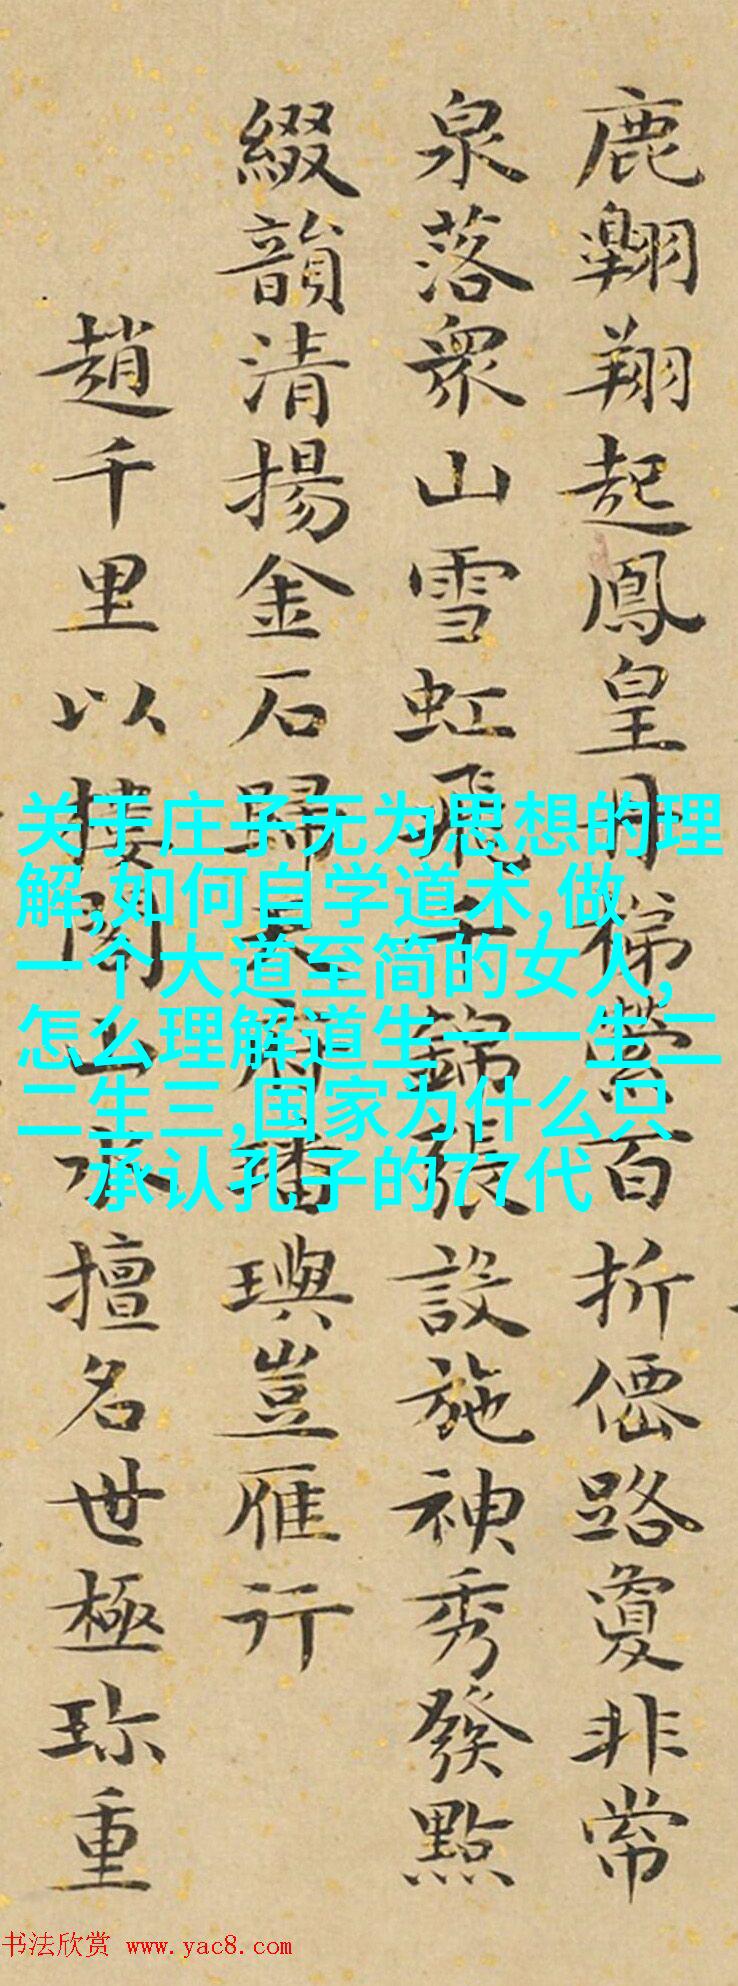 鹿翺翔起鳳皇丹梯縈百折僊路敻非常
泉落衆山雪虹飛 錦張設施神秀發點
綴韻清揚金石歸 璠璵豈雁行
趙千里以樓閣山水擅名世極珍重
关于庄子无为思想的理
解,如何自学道术,做
一个大道至简的女人,
怎么理解道生一一生二
二生三,国家为什么只
承认孔子的77代
书法欣赏 www.yac8.com